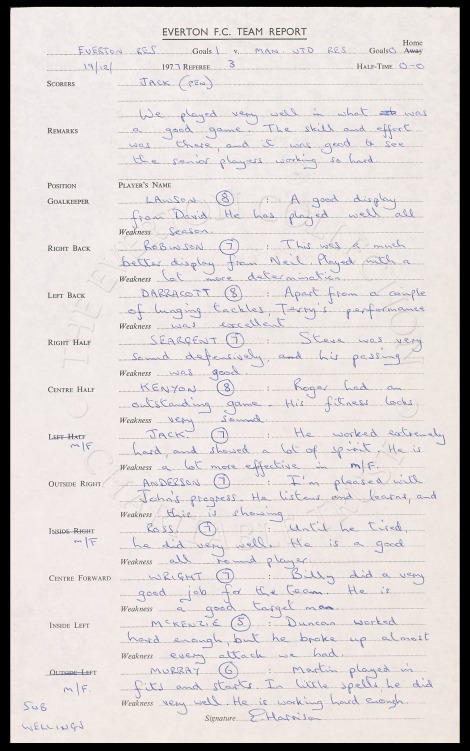 EVERTON F.C. TEAM REPORT
EVERTON RES Goals 1 v. MAN. UTD RES. Goals 0 Home Away
17/12/ 1977 REFEREE 3 HALF-TIME 0-0
SCORERS JACK (PEN)
We played very well in what was
REMARKS a good game. The skill and effort
was there, and it was good to see
the senior players working so hard.
POSITION PLAYER'S NAME
GOALKEEPER LAWSON (8) : A good display
from David. He has played well all
Weakness season.
RIGHT BACK ROBINSON (7) : This was a much
better display from Neil. Played with a
Weakness lot more determination.
LEFT BACK DARRACOTT (8) : Apart from a couple
of lunging tackles, Terry's performance
Weakness was excellent
RIGHT HALF SEARGENT (7) : Steve was very
sound defensively, and his passing
Weakness was good.
CENTRE HALF KENYON (8) : Roger had an
outstanding game. His fitness looks
Weakness very sound
LEFT HALF JACK. (7) : He worked extremely
M/F hard, and showed a lot of spirit. He is
Weakness a lot more effective in M/F.
OUTSIDE RIGHT ANDERSON (7) : I'm pleased with
John's progress. He listens and learns, and
Weakness this is showing
INSIDE RIGHT ROSS. (7) : Until he tired,
M/F he did very well. He is a good
Weakness all round player.
CENTRE FORWARD WRIGHT (7) : Billy did a very
good job for the team. He is
Weakness a good target man
INSIDE LEFT McKENZIE (5) : Duncan worked
hard enough, but he broke up almost
Weakness every attack we had.
OUTSIDE LEFT MURRAY (6) : Martin played in
M/F. fits and starts. In little spells, he did
SUB Weakness very well. He is working hard enough.
WELLINGS Signature E Harrison